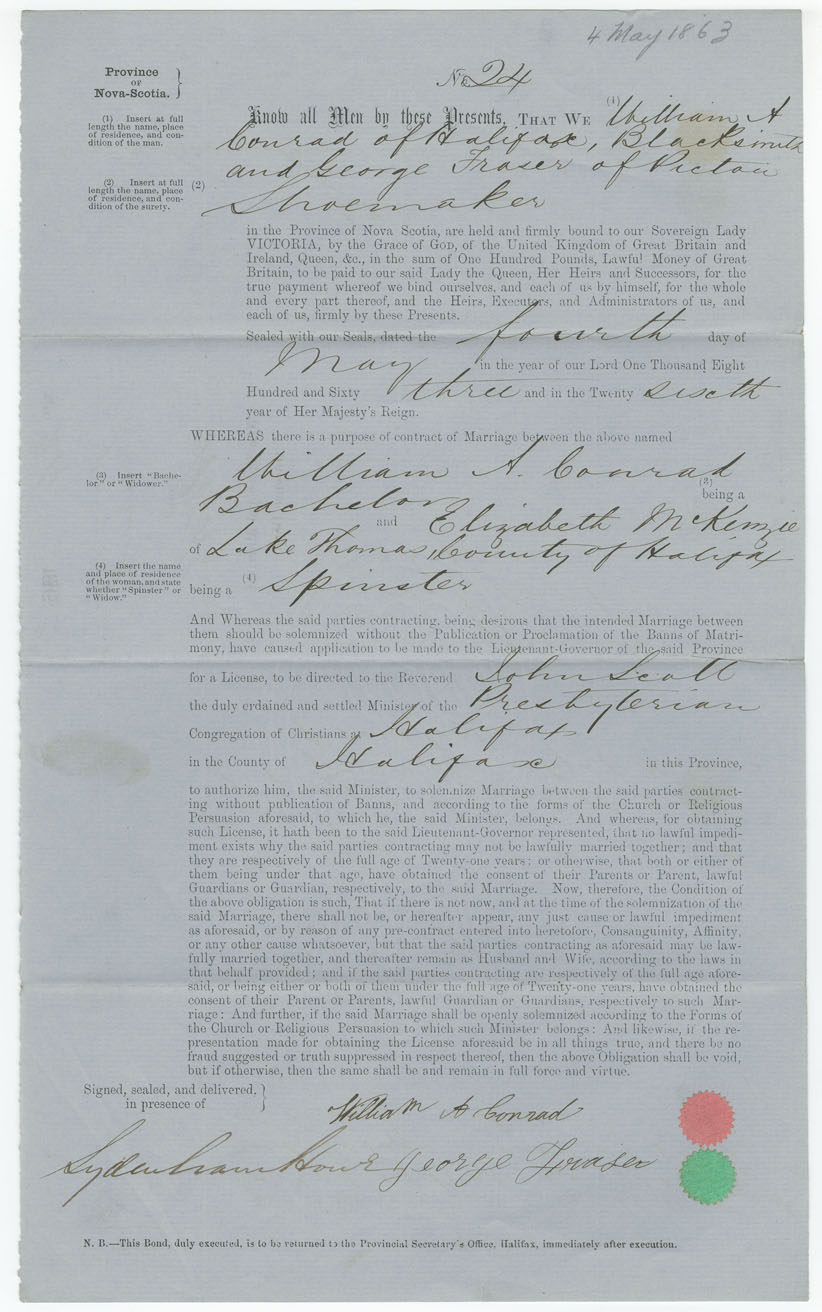 4 May 1863
Province
OF
Nova-Scotia.
No 24
(1) Insert at full
length the name, place
of residence, and con-
dition of the man.
Know all Men by these Presents, THAT WE (1) William A
Conrad of Halifax, Blacksmith
and George Fraser of Pictou
(2) Insert at full
length the name, place
of residence, and con-
dition of the surety.
(2) Shoemaker
in the Province of Nova Scotia, are held and firmly bound to our Sovereign Lady
VICTORIA, by the Grace of GOD, of the United Kingdom of Great Britain and
Ireland, Queen, &c., in the sum of One Hundred Pounds, Lawful Money of Great
Britain, to be paid to our said Lady the Queen, Her Heirs and Successors, for the
true payment whereof we bind ourselves, and each of us by himself, for the whole
and every part thereof, and the Heirs, Executors, and Administrators of us, and
each of us, firmly by these Presents.
Sealed with our Seals, dated the fourth day of
May in the year of our Lord One Thousand Eight
Hundred and Sixty three and in the Twenty sixth
year of Her Majesty's Reign.
WHEREAS there is a purpose of contract of Marriage between the above named
(3) Insert "Bache-
lor" or "Widower."
William A. Conrad
(3) being a
Bachelor
and Elizabeth McKenzie
of Lake Thomas, County of Halifax
(4) Insert the name
and place of residence
of the woman, and state
whether "Spinster" or
"Widow."
being a (4) Spinster
And Whereas the said parties contracting, being desirous that the intended Marriage between
them should be solemnized without the Publication or Proclamation of the Banns of Matri-
mony, have caused application to be made to the Lieutenant-Governor of the said Province
for a License, to be directed to the Reverend John Scott
the duly ordained and settled Minister of the Presbyterian
Congregation of Christians at Halifax
in the County of Halifax in this Province,
to authorize him, the said Minister, to solemnize Marriage between the said parties contract-
ing without publication of Banns, and according to the forms of the Church or Religious
Persuasion aforesaid, to which he, the said Minister, belongs. And whereas, for obtaining
such License, it hath been to the said Lieutenant-Governor represented, that no lawful impedi-
ment exists why the said parties contracting may not be lawfully married together; and that
they are respectively of the full age of Twenty-one years; or otherwise, that both or either of
them being under that age, have obtained the consent of their Parents or Parent, lawful
Guardians or Guardian, respectively, to the said Marriage. Now, therefore, the Condition of
the above obligation is such, That if there is not now, and at the time of the solemnization of the
said Marriage, there shall not be, or hereafter appear, any just cause or lawful impediment
as aforesaid, or by reason of any pre-contract entered into heretofore, Consanguinity, Affinity,
or any other cause whatsoever, but that the said parties contracting as aforesaid may be law-
fully married together, and thereafter remain as Husband and Wife, according to the laws in
that behalf provided; and if the said parties contracting are respectively of the full age afore-
said, or being either or both of them under the full age of Twenty-one years, have obtained the
consent of their Parent or Parents, lawful Guardian or Guardians, respectively to such Mar-
riage: And further, if the said Marriage shall be openly solemnized according to the Forms of
the Church or Religious Persuasion to which such Minister belongs: And likewise, if the re-
presentation made for obtaining the License aforesaid be in all things true, and there be no
fraud suggested or truth suppressed in respect thereof, then the above Obligation shall be void,
but if otherwise, then the same shall be and remain in full force and virtue.
Signed, sealed, and delivered,
in presence of
William A Conrad
Sydenham Howe George Fraser
N. B.—This Bond, duly executed, is to be returned to the Provincial Secretary's Office, Halifax, immediately after execution.